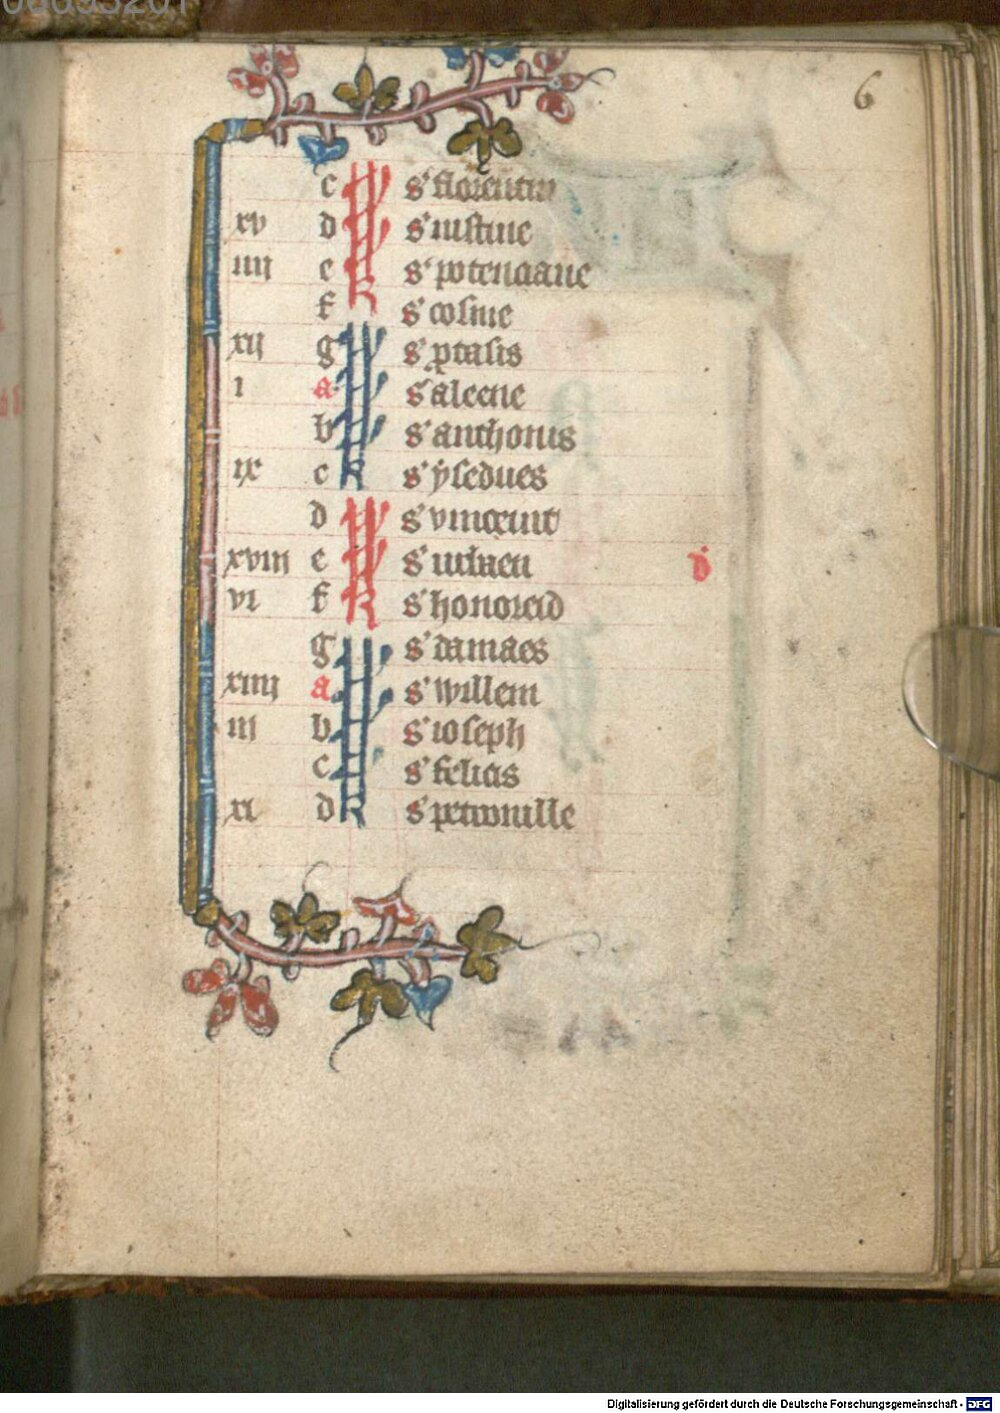 6
c s' florentin
xv d s' iustine
iiii e s' potenciane
f s' cosme
xii g s' ptasis
i a s' alectie
b s' anthonis
ix c s' ysedues
d s' vincent
xviii e s'
vi f s' honoreid
g s' damaes
xiiii a s' willem
iii b s' ioseph
c s' felicis
xi d s' petronille
Digitalisierung gefördert durch die Deutsche Forschungsgemeinschaft - DFG